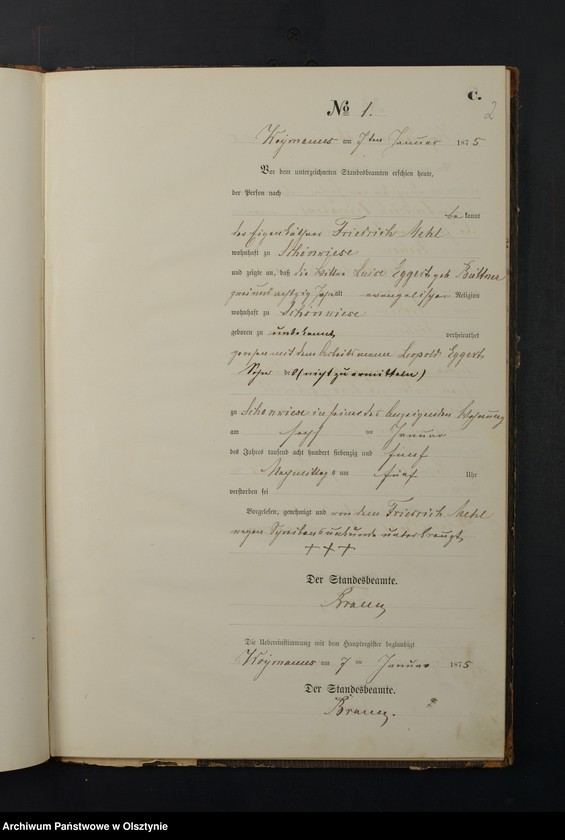 C.
2
No 1.
am 7ten Januar 1875
Vor dem unterzeichneten Standesbeamten erschien heute,
der Person nach
be kannt
Friedrich Mehl
wohnhaft zu Schönwiese
und zeigte an, daß die Wittwe Luise Eggert geb. Büttner
zweiundachtzig Jahr alt evangelischer Religion
wohnhaft zu Schönwiese
geboren zu unbekannt, verheirathet
gewesen mit dem Arbeitsmann Leopold Eggert
(nicht zu ermitteln)
zu Schönwiese in seiner des Anzeigenden Wohnung
am sechs ten Januar
des Jahres tausend acht hundert siebenzig und fünf
Nachmittag s um fünf Uhr
verstorben sei
Vorgelesen, genehmigt und von dem Friedrich Mehl
wegen Schreibensunkunde unterkreuzt,
+ + +
Der Standesbeamte.
Die Uebereinstimmung mit dem Hauptregister beglaubigt
am 7 ten Januar 1875
Der Standesbeamte.
Archiwum Państwowe w Olsztynie